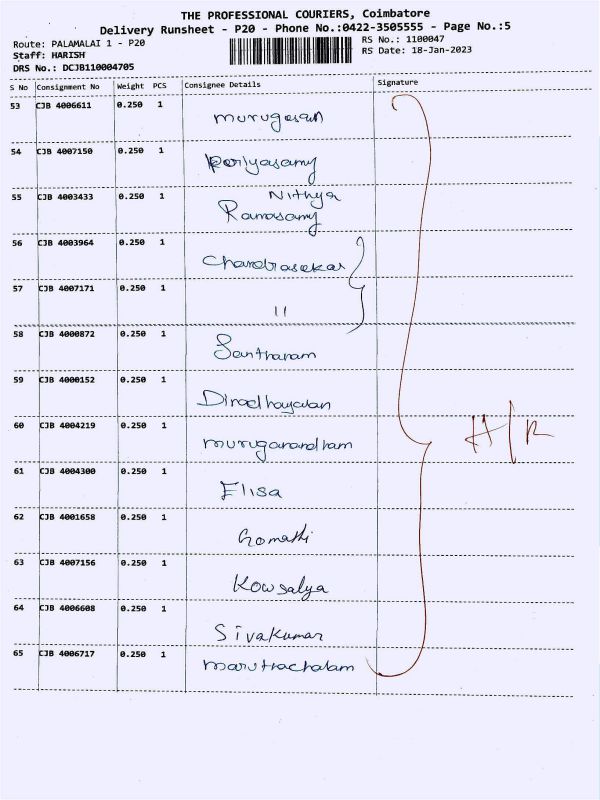 THE PROFESSIONAL COURIERS, Coimbatore
Delivery Runsheet - P20 - Phone No.:0422-3505555 - Page No.:5
Route: PALAMALAI 1 - P20
RS No.: 1100047
Staff: HARISH
RS Date: 18-Jan-2023
DRS No.: DCJB110004705
S No Consignment No Weight PCS Consignee Details Signature
53 CJB 4006611 0.250 1 murugesan
54 CJB 4007150 0.250 1 periyasamy
55 CJB 4003433 0.250 1 Nithya
Ramasamy
56 CJB 4003964 0.250 1 Chandrasekar
57 CJB 4007171 0.250 1 11
58 CJB 4000872 0.250 1 Santharam
59 CJB 4000152 0.250 1
60 CJB 4004219 0.250 1 muruganandham
H/R
61 CJB 4004300 0.250 1 Elisa
62 CJB 4001658 0.250 1 Gomathi
63 CJB 4007156 0.250 1 Kowsalya
64 CJB 4006608 0.250 1 Sivakumar
65 CJB 4006717 0.250 1 maruthachalam